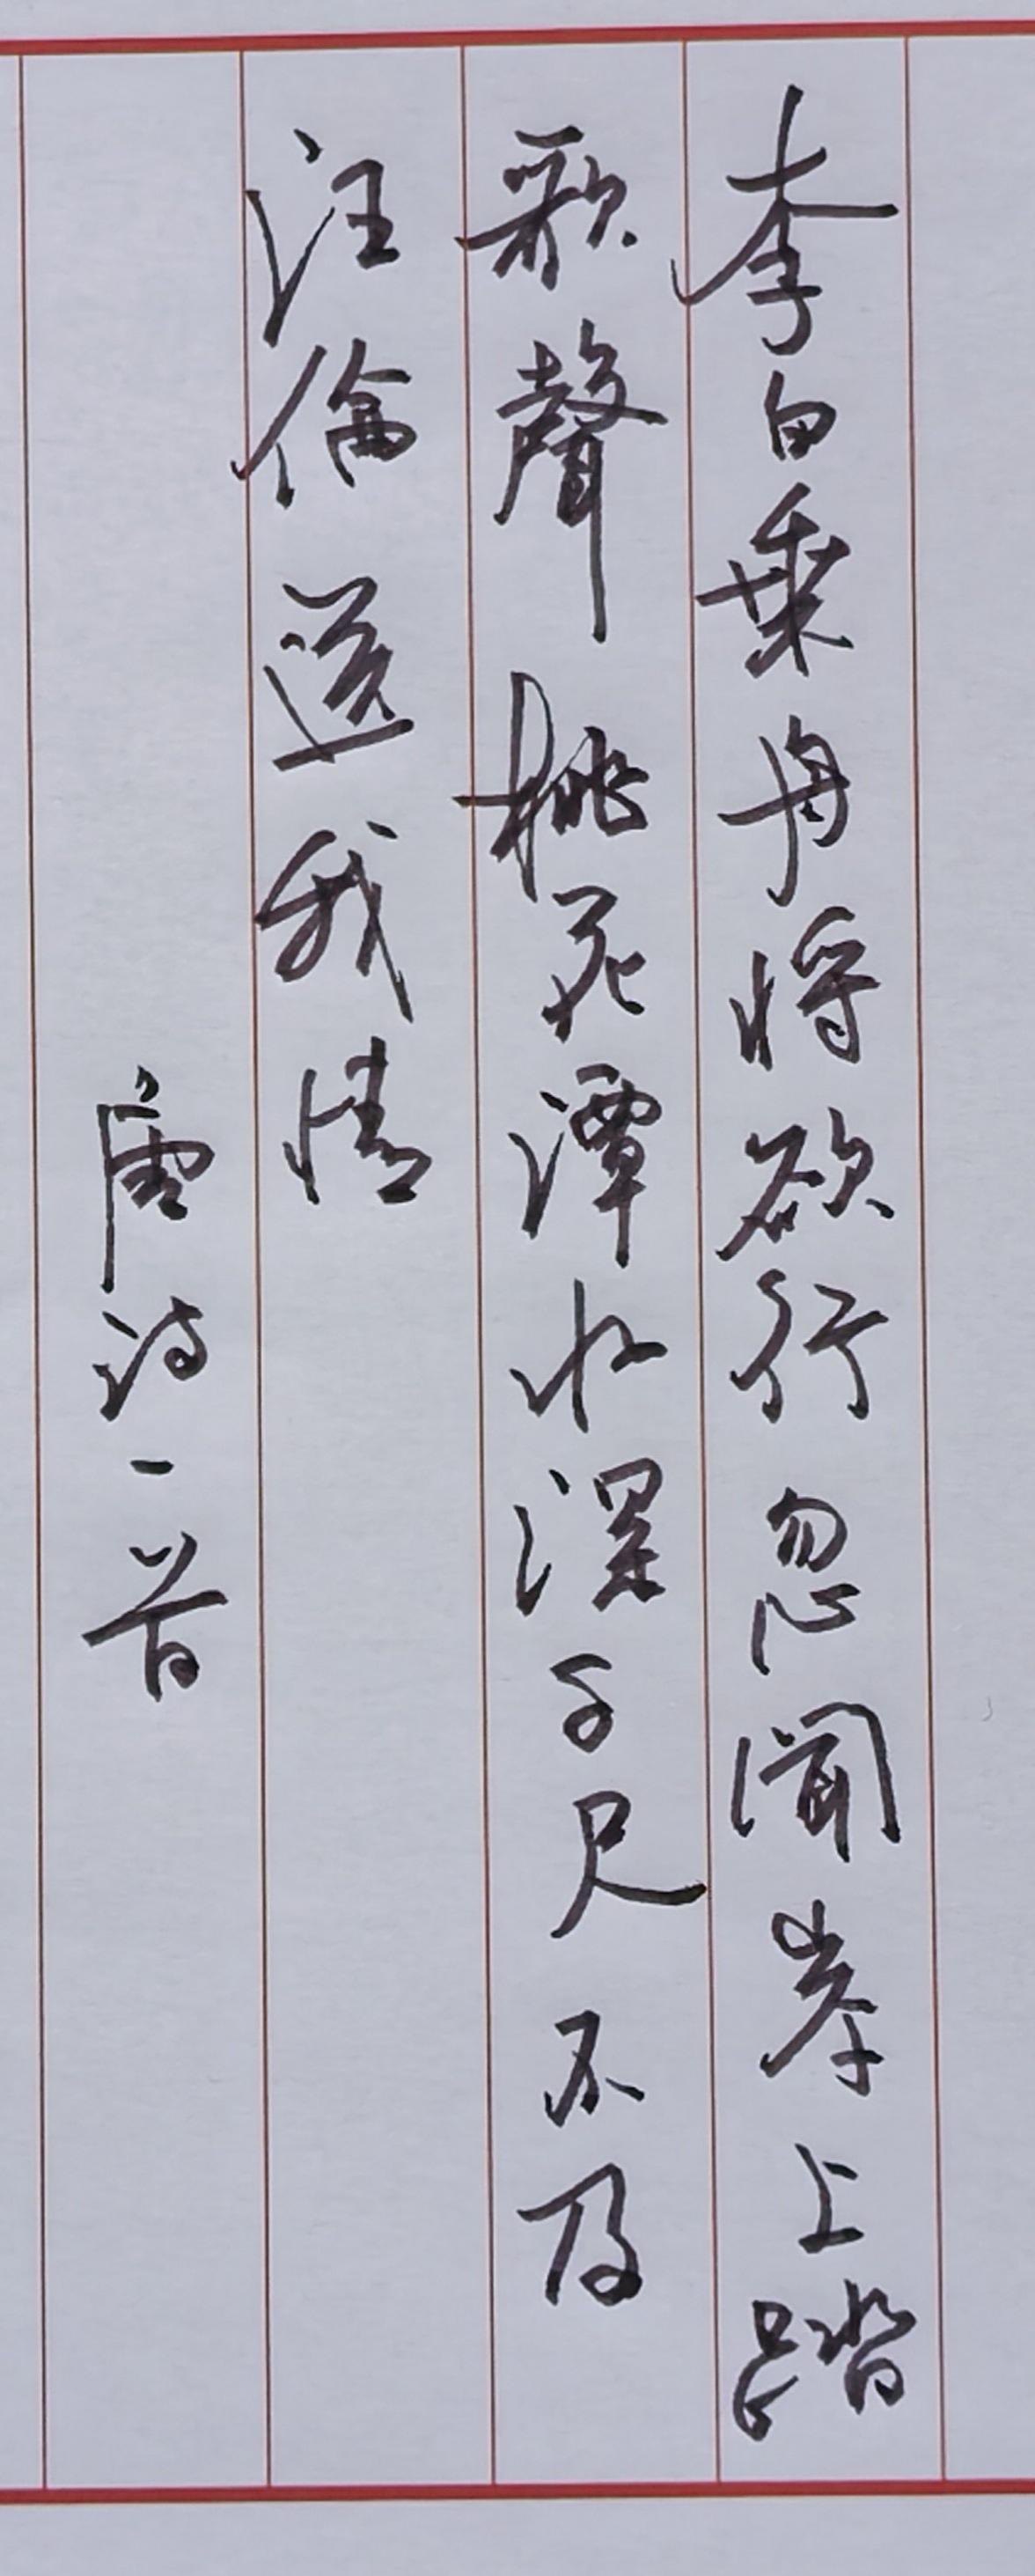 李白乘舟将欲行忽闻岸上踏
歌聲桃花潭水深千尺不及
汪倫送我情
唐诗一首